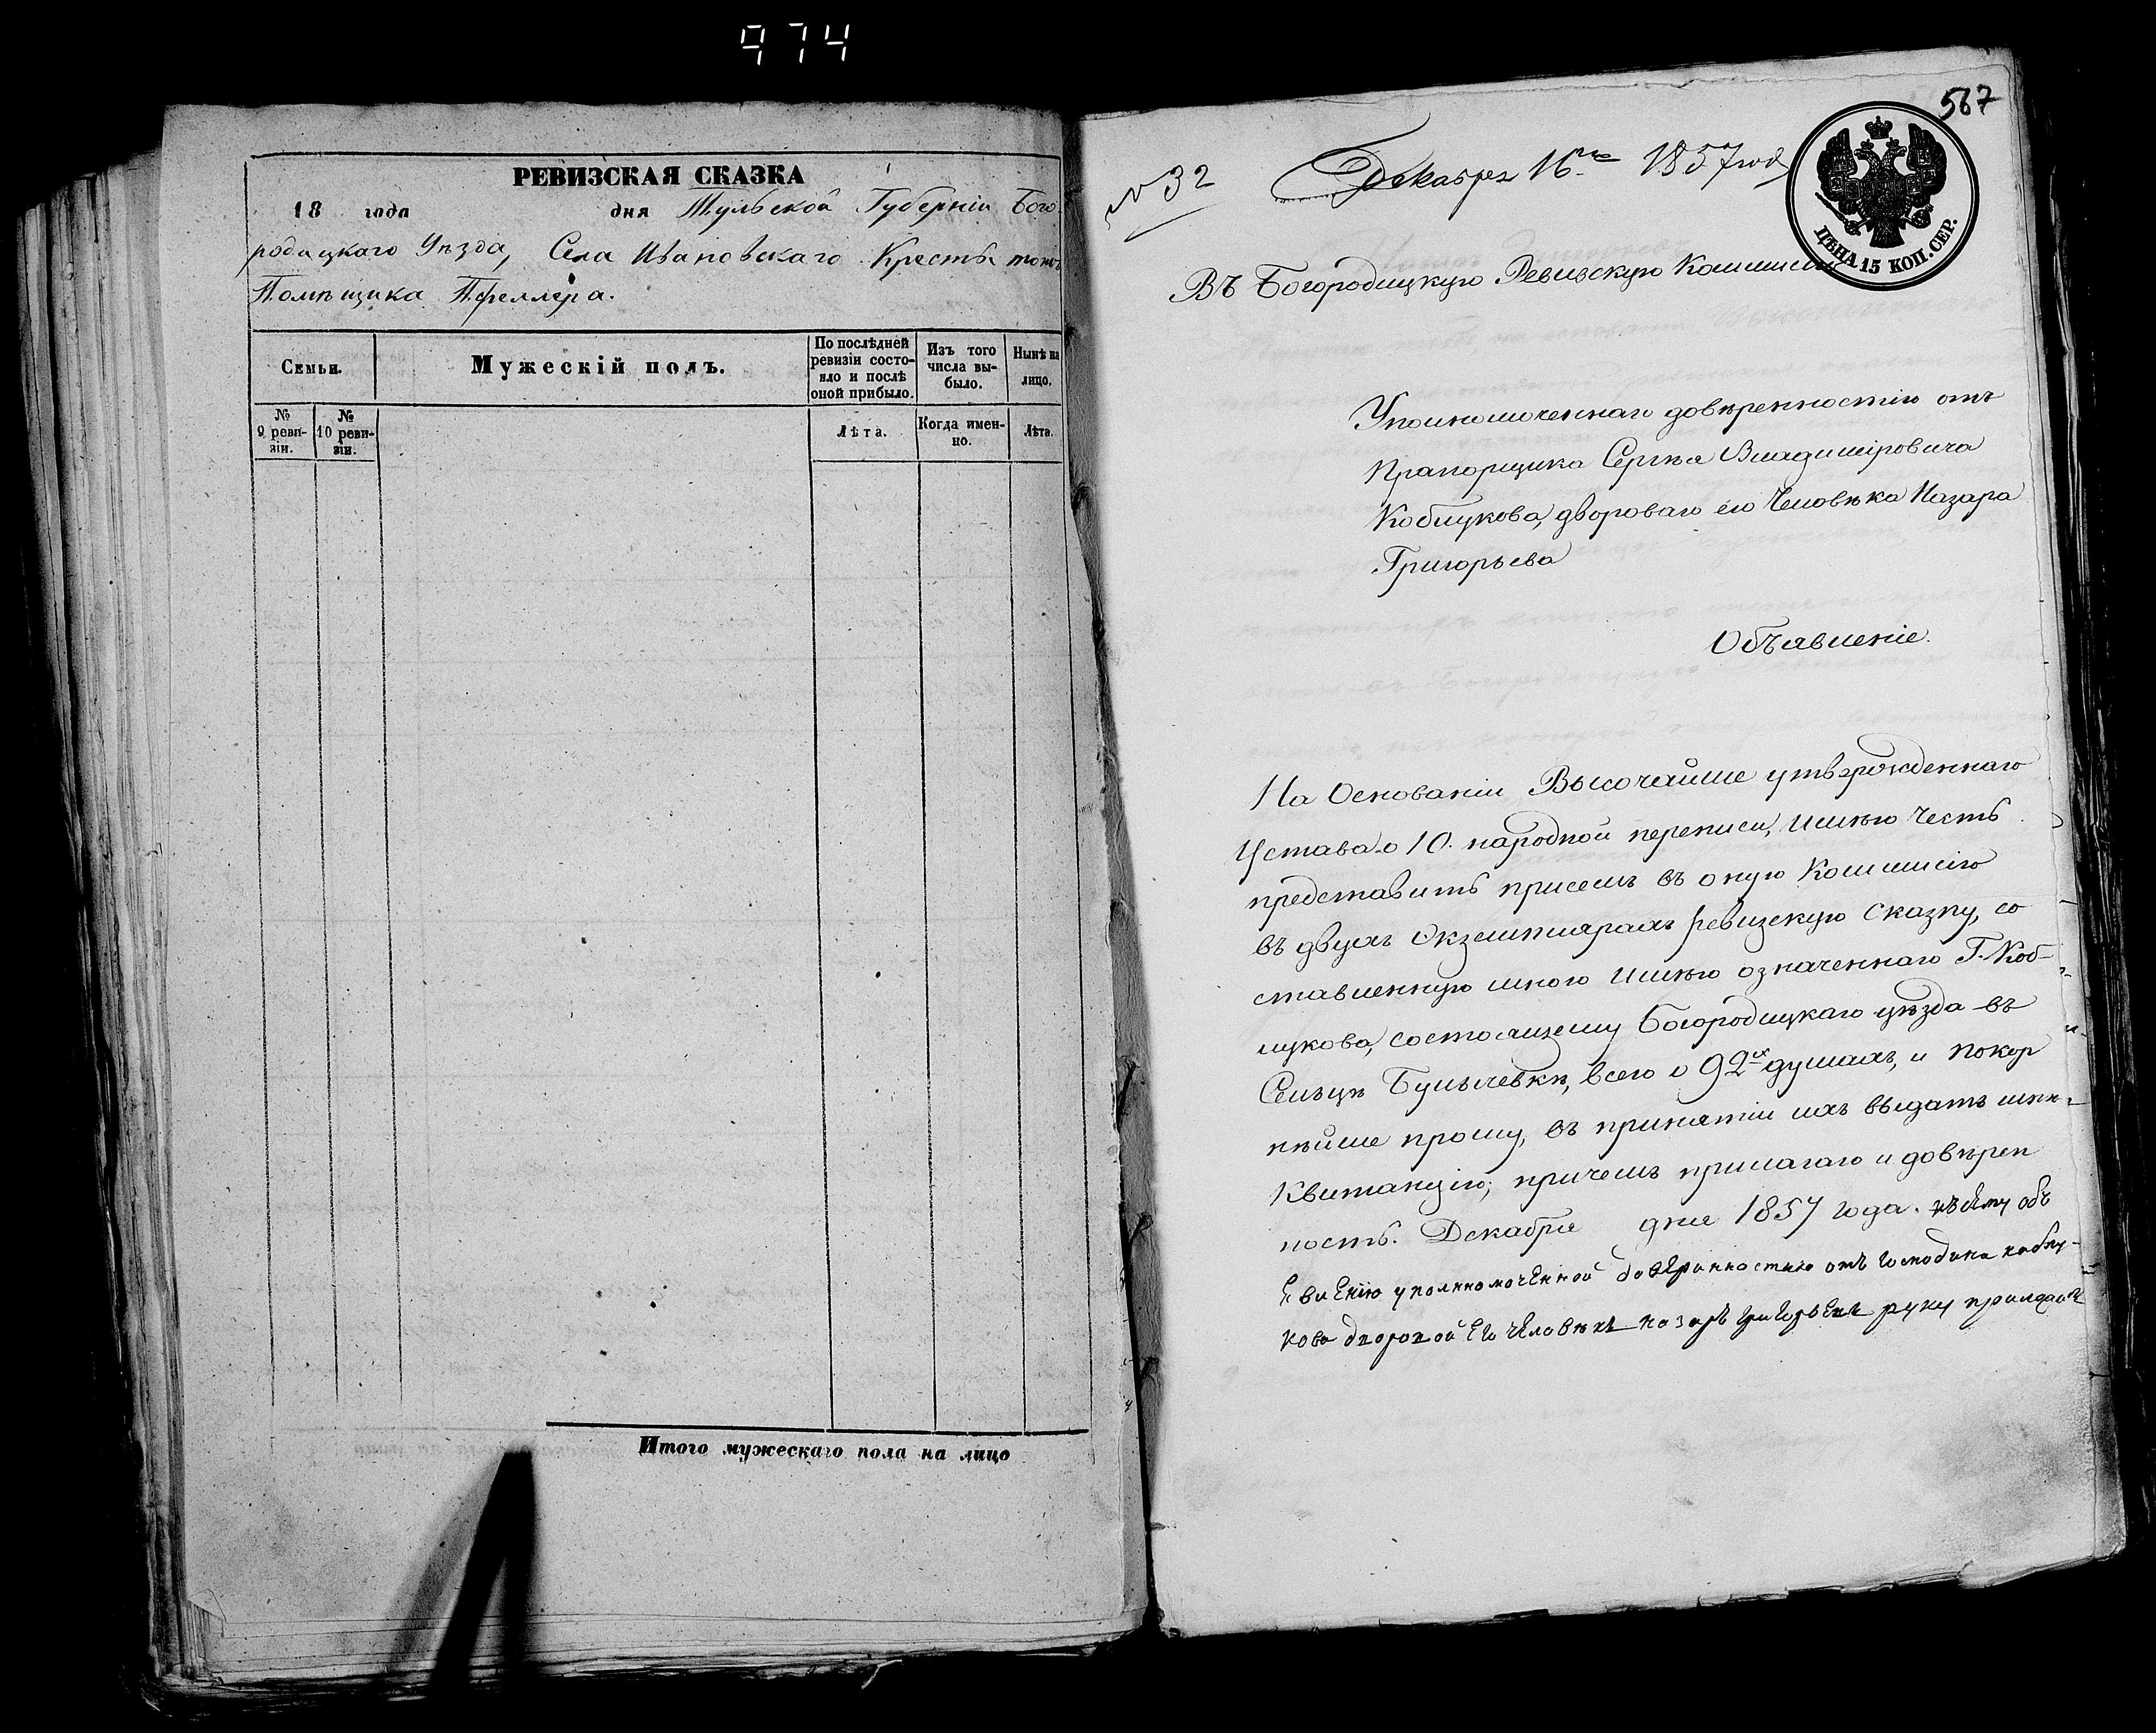 974
РЕВИЗСКАЯ СКАЗКА
18 года дня Тульской Губерніи Бого
родицкаго Уѣзда, Села Ивановскаго Крестья
Помѣщика Пфеллера.
Семьи.
Мужескій полъ.
По послѣдней ревизіи состо-
яло и послѣ
оной прибыло.
Изъ того
числа вы-
было.
Нынѣ на
лицо.
№
9 реви-
зіи.
№
10 реви-
зіи.
Лѣта.
Когда имен-
но.
Лѣта.
Итого мужескаго пола на лицо
567
№ 32
Декабря 16го 1857 года
ЦѢНА 15 КОП. СЕР.
Въ Богородицкую Ревизскую Коммисію
Уполномоченнаго довѣренностію отъ
Прапорщика Сергѣя Владиміровича
Коблукова, двороваго его Человѣка Назара
Григорьева
Объявленіе.
На Основаніи Высочайше утвержденнаго
Устава о 10. народной переписи, имѣю честь
представить присемъ въ оную Коммисію
въ двухъ Экземплярахъ ревизскую сказку, со
ставленную мною имѣю означеннаго Г. Коб-
лукова, состоящему Богородицкаго уѣзда въ
Сельцѣ Булычевкѣ, всего о 92хъ душахъ, и покор
нѣйше прошу, въ принятіи ихъ выдать мнѣ
Квитанцію; причемъ прилагаю и довѣрен
ность. Декабря дня 1857 года. къ сему объ
евленію уполнномоченной доверинностію отъ Господина коблу-
кова дворовой его человѣкъ назаръ григорьевъ руку приложилъ